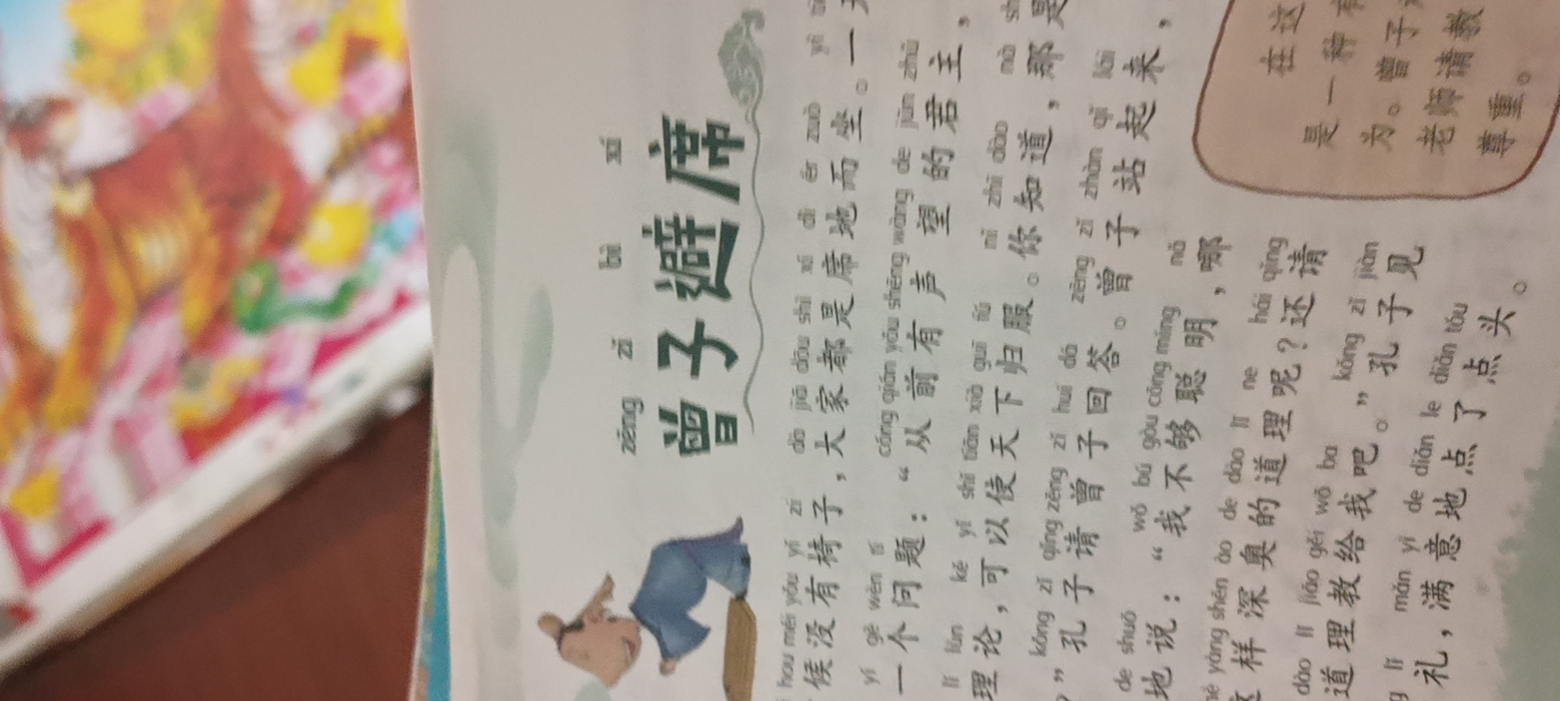 zēng zǐ bì xí
曾子避席
hou méi yǒu yǐ zi dà jiā dōu shì xí dì ér zuò yì
候没有椅子，大家都是席地而坐。一
yí gè wèn tí cóng qián yǒu shēng wàng de jūn zhǔ
一个问题：“从前有声望的君主，
lǐ lùn kě yǐ shǐ tiān xià guī fú nǐ zhī dào nà
理论，可以使天下归服。你知道，那是
kǒng zǐ qǐng zēng zǐ huí dá zēng zǐ zhàn qǐ lái
”孔子请曾子回答。曾子站起来，
de shuō wǒ bú gòu cōng míng nǎ
地说：“我不够聪明，哪
yàng shēn ào de dào lǐ ne hái qǐng
这样深奥的道理呢？还请
dào lǐ jiāo gěi wǒ ba kǒng zǐ jiàn
道理教给我吧。”孔子见
lǐ mǎn yì de diǎn le diǎn tóu
礼，满意地点了点头。
在这
是一种
为。曾子
老师请教
尊重。